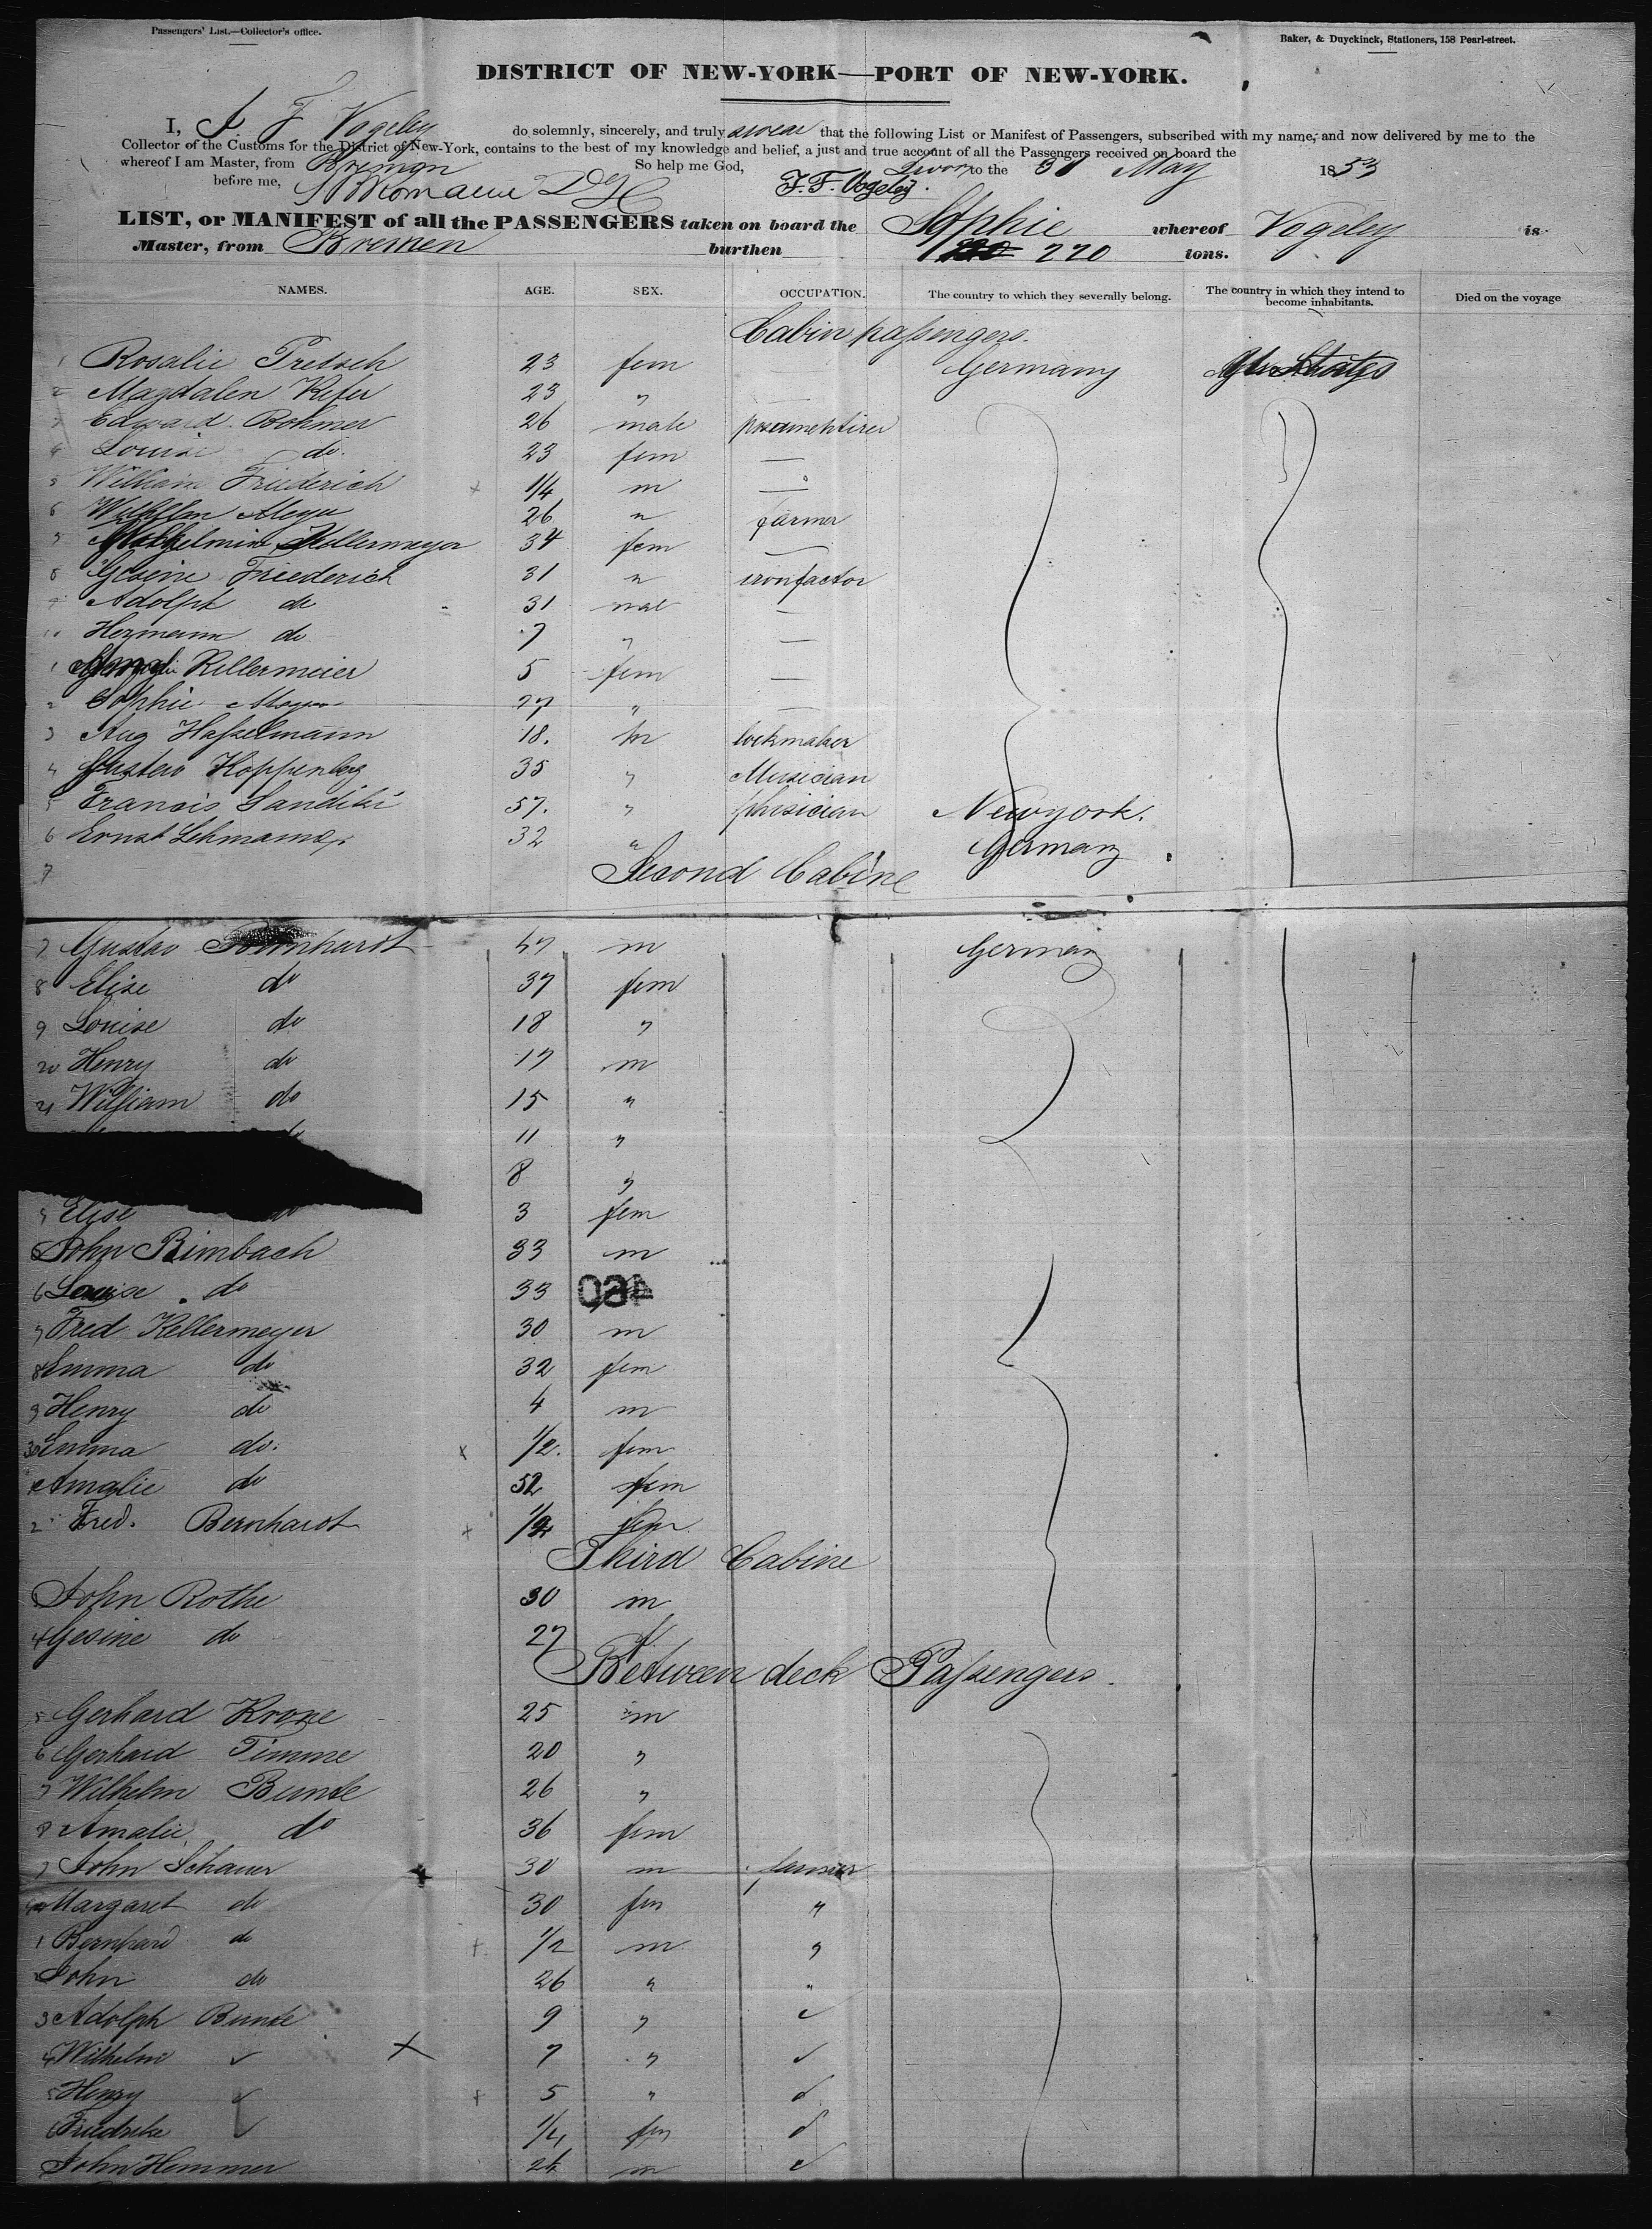 Passengers' List.—Collector's office.
Baker, & Duyckinck, Stationers, 158 Pearl-street.
DISTRICT OF NEW-YORK—PORT OF NEW-YORK.
I, J. F. Vogeley do solemnly, sincerely, and truly swear that the following List or Manifest of Passengers, subscribed with my name, and now delivered by me to the
Collector of the Customs for the District of New-York, contains to the best of my knowledge and belief, a just and true account of all the Passengers received on board the
whereof I am Master, from Bremen So help me God, Sworn to the 31 May 1853
before me, J. F. Vogeley.
LIST, or MANIFEST of all the PASSENGERS taken on board the Sophie whereof Vogeley is
Master, from Bremen burthen 220 tons.
NAMES. AGE. SEX. OCCUPATION. The country to which they severally belong. The country in which they intend to become inhabitants. Died on the voyage
Cabin passengers.
1 Rosalie Pretsch 23 fem Germany
2 Magdalen 23 "
3 Edward Bohmer 26 male
4 Louise do. 23 fem —
5 William Friederich 1/4 m —
6 Wilhelm Meyer 26 " farmer
7 Kellermeyer 34 fem —
8 Gesine Friederich 31 " ironfactor
9 Adolph do 31 mal —
10 Hermann do 7 " —
1 Kellermeier 5 fem —
2 Sophie Meyer 27 " —
3 Aug Hasselmann 18. m lockmaker
4 Gustav Koppenberg 35 " Musician
5 Francis 57. " phisician Newyork.
6 Ernst Lehmann 32 " Germany
7 Second Cabine
7 Gustav Bernhardt 47 m Germany
8 Elise do 37 fem
9 Louise do 18 "
20 Henry do 17 m
21 William do 15 "
11 "
8 "
Elise 3 fem
John Bimbach 33 m
6 Louise do 33 460
7 Fred Kellermeyer 30 m
8 Emma do 32 fem
9 Henry do 4 m
30 Emma do. x 1/2. fem
1 Amalie do 52 fem
2 Fred. Bernhardt x fem
Third Cabine
John Rothe 30 m
4 Gesine do 27 f.
Between deck Passengers.
5 Gerhard Krone 25 m
6 Gerhard Timme 20 "
7 Wilhelm Bunte 26 "
8 Amalie do 36 fem
9 John Schauer 30 m farmer
Margaret do 30 fem "
1 Bernhard do x 1/2 m "
John do 26 " "
3 Adolph Bunte 9 "
4 Wilhelm x 7 "
5 Henry x 5 "
6 Friedrike 1/4 fem
John Hemmer 24 m